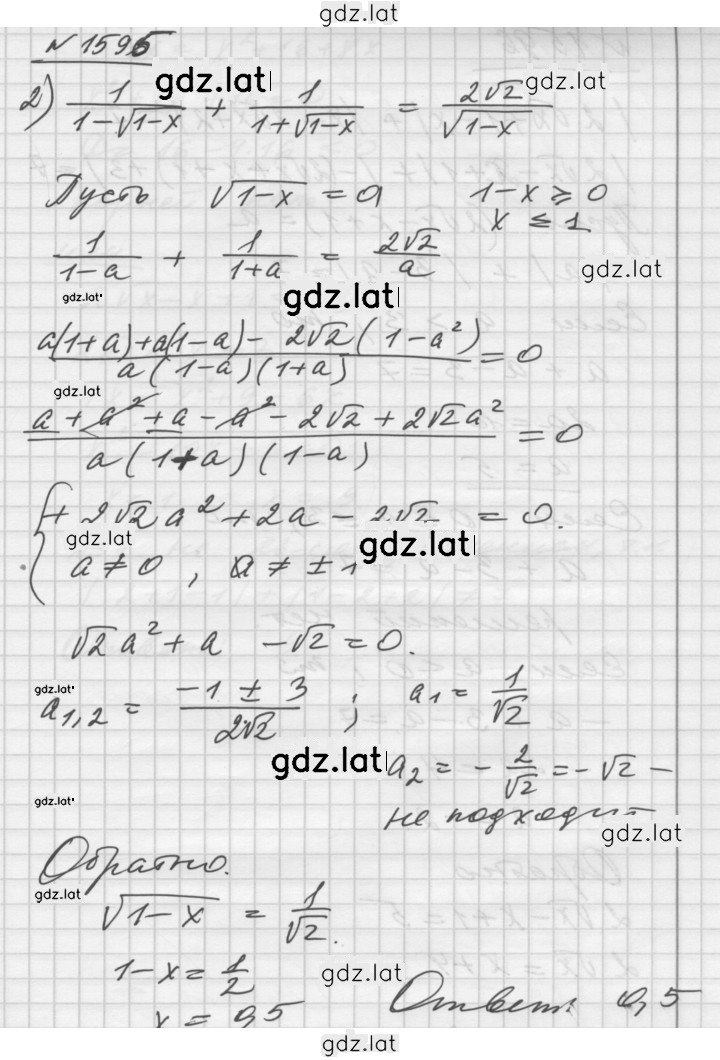 gdz.lat
№ 1595
gdz.lat
gdz.lat
2) 1/(1-√(1-x)) + 1/(1+√(1-x)) = 2√2/√(1-x)
Пусть √(1-x) = a    1-x ≥ 0
x ≤ 1
1/(1-a) + 1/(1+a) = 2√2/a
gdz.lat
gdz.lat
gdz.lat
(a(1+a)+a(1-a)- 2√2(1-a²))/(a(1-a)(1+a)) = 0
gdz.lat
(a + a² + a - a² - 2√2 + 2√2a²)/(a(1+a)(1-a)) = 0
{ + 2√2a² + 2a - 2√2 = 0.
gdz.lat
gdz.lat
a ≠ 0 , a ≠ ± 1
√2a² + a - √2 = 0.
gdz.lat
a1,2 = (-1 ± 3)/(2√2) ; a1 = 1/√2
gdz.lat
a2 = - 2/√2 = - √2 -
gdz.lat
не подходит
gdz.lat
Обратно.
gdz.lat
√(1-x) = 1/√2.
1-x = 1/2
gdz.lat
x = 0,5    Ответ: 0,5
gdz.lat